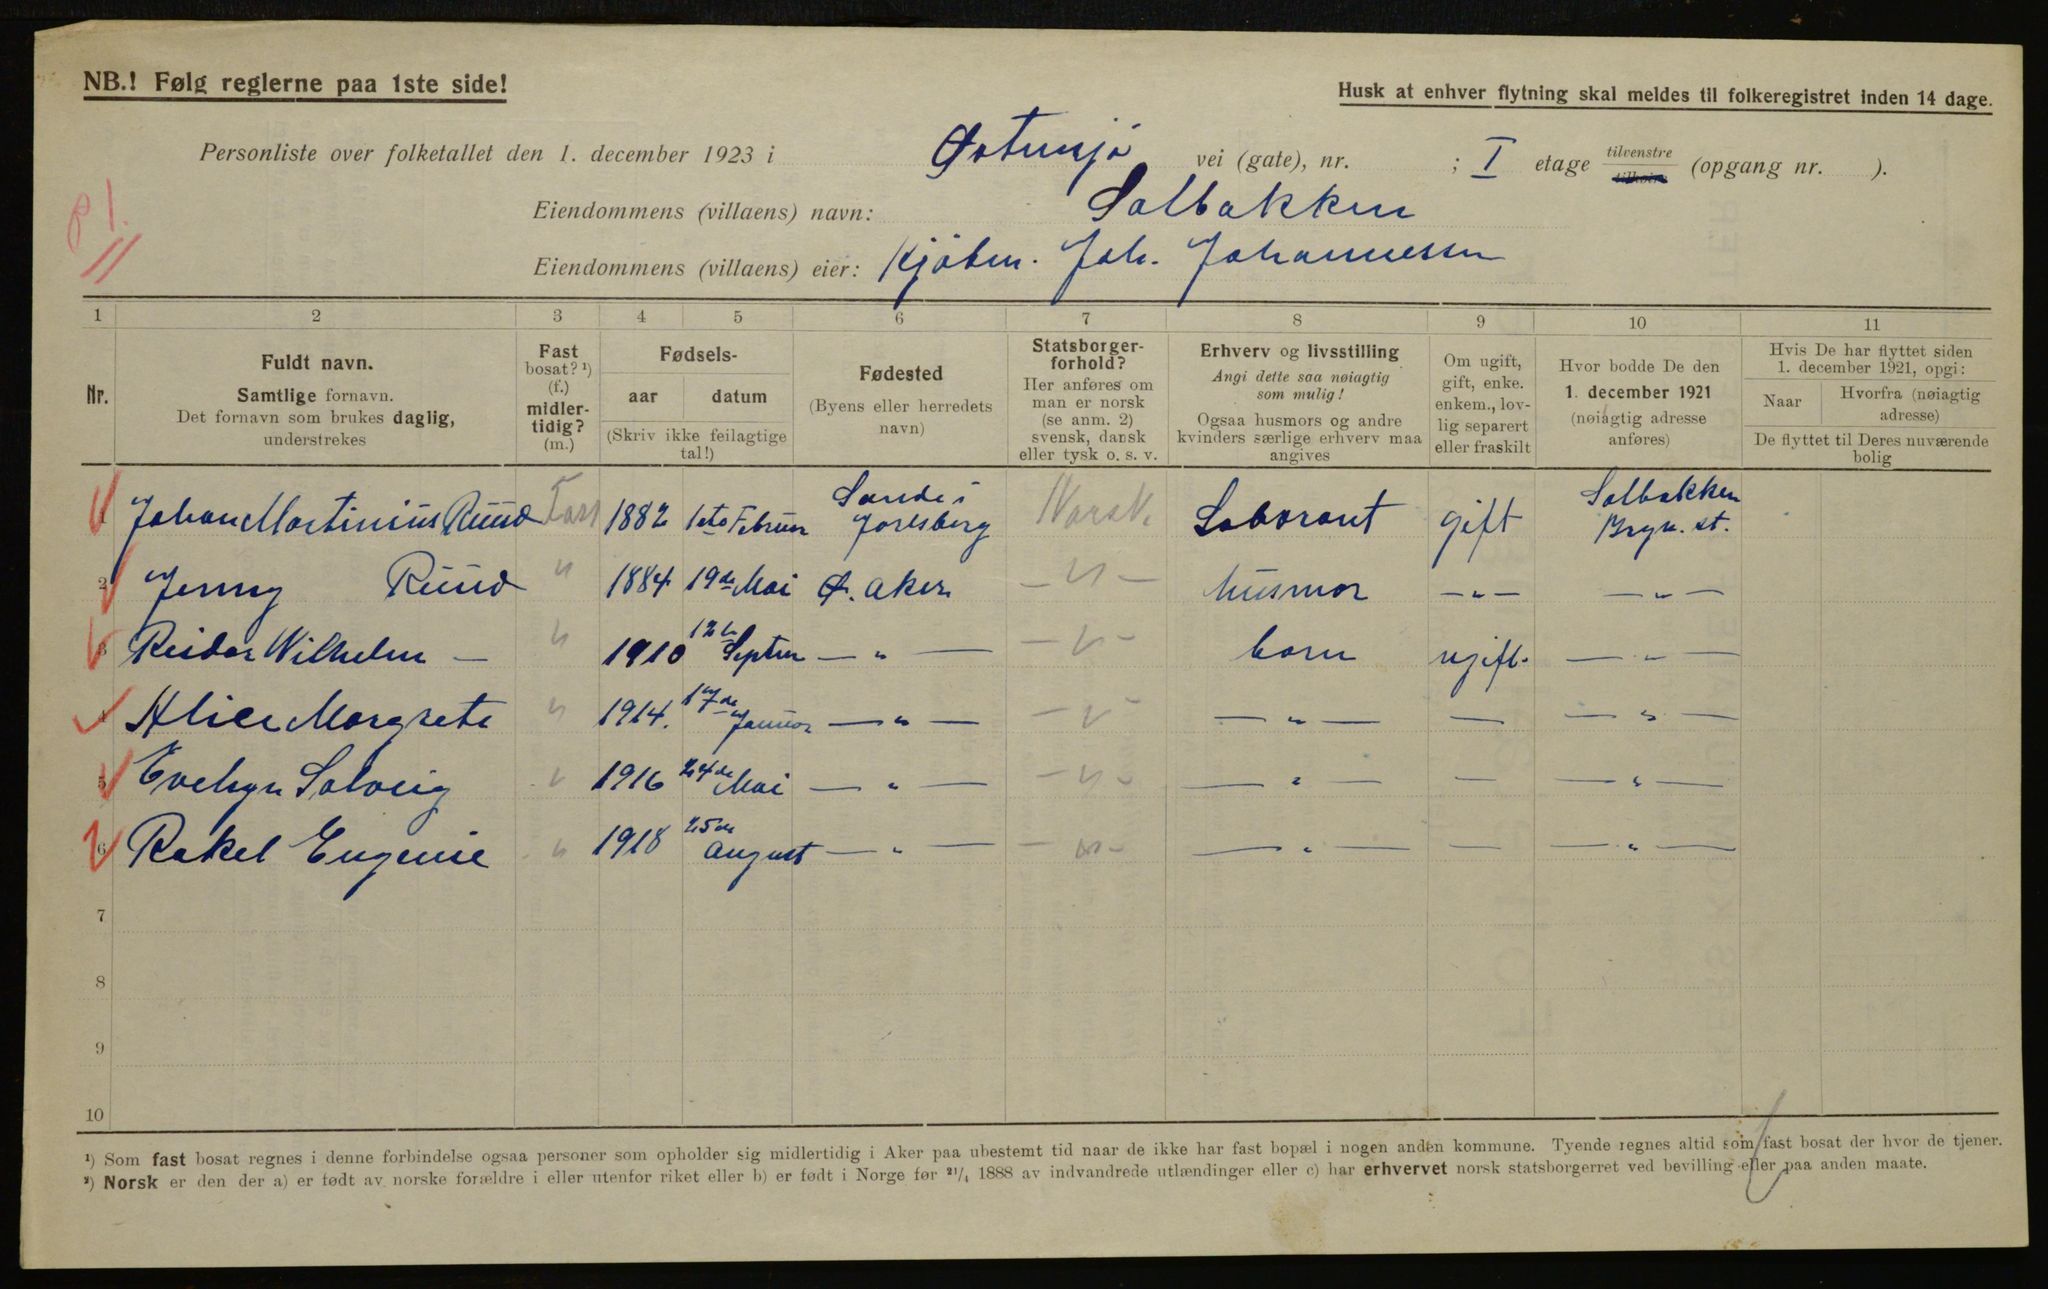 NB.! Følg reglerne paa 1ste side!
Husk at enhver flytning skal meldes til folkeregistret inden 14 dage.
Personliste over folketallet den 1. december 1923 i Østensjø vei (gate), nr. ; I etage tilvenstre tilhøire (opgang nr. ).
Eiendommens (villaens) navn: Solbakken
Eiendommens (villaens) eier: Kjøbm. Joh. Johannessen
1 2 3 4 5 6 7 8 9 10 11
Nr.
Fuldt navn.
Samtlige fornavn.
Det fornavn som brukes daglig,
understrekes
Fast
bosat? ¹)
(f.)
midler-
tidig?
(m.)
Fødsels-
aar datum
(Skriv ikke feilagtige
tal!)
Fødested
(Byens eller herredets
navn)
Statsborger-
forhold?
Her anføres om
man er norsk
(se anm. 2)
svensk, dansk
eller tysk o. s. v.
Erhverv og livsstilling
Angi dette saa nøiagtig
som mulig!
Ogsaa husmors og andre
kvinders særlige erhverv maa
angives
Om ugift,
gift, enke.
enkem., lov-
lig separert
eller fraskilt
Hvor bodde De den
1. december 1921
(nøiagtig adresse
anføres)
Hvis De har flyttet siden
1. december 1921, opgi:
Naar Hvorfra (nøiagtig
adresse)
De flyttet til Deres nuværende
bolig
1 Johan Martinius Ruud Fast 1882 1ste Februar Sande i Jarlsberg Norsk Laborant gift Solbakken Bryn. st.
2 Jenny Ruud " 1884 19de Mai Ø. Aker — " — husmor — " — — " —
3 Reidar Wilhelm — " 1910 12te Septem — " — — " — barn ugift. — " —
4 Alice Margrete " 1914. 17de Januar — " — — " — — " — — — " —
5 Evelyn Solveig " 1916 24de Mai — " — — " — — " — — — " —
6 Rakel Eugenie " 1918 25de August — " — — " — — " — — — " —
7
8
9
10
¹) Som fast bosat regnes i denne forbindelse ogsaa personer som opholder sig midlertidig i Aker paa ubestemt tid naar de ikke har fast bopæl i nogen anden kommune. Tyende regnes altid som fast bosat der hvor de tjener.
²) Norsk er den der a) er født av norske forældre i eller utenfor riket eller b) er født i Norge før ²¹/₄ 1888 av indvandrede utlændinger eller c) har erhvervet norsk statsborgerret ved bevilling eller paa anden maate.